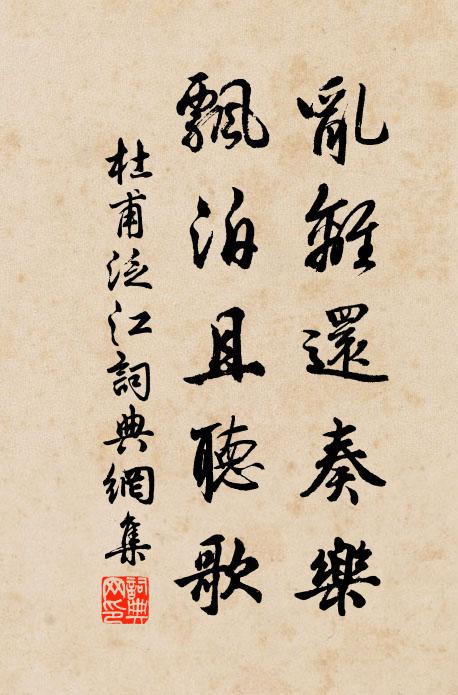 亂離還奏樂
飄泊且聽歌
杜甫泛江詞典網集
詞典
网印